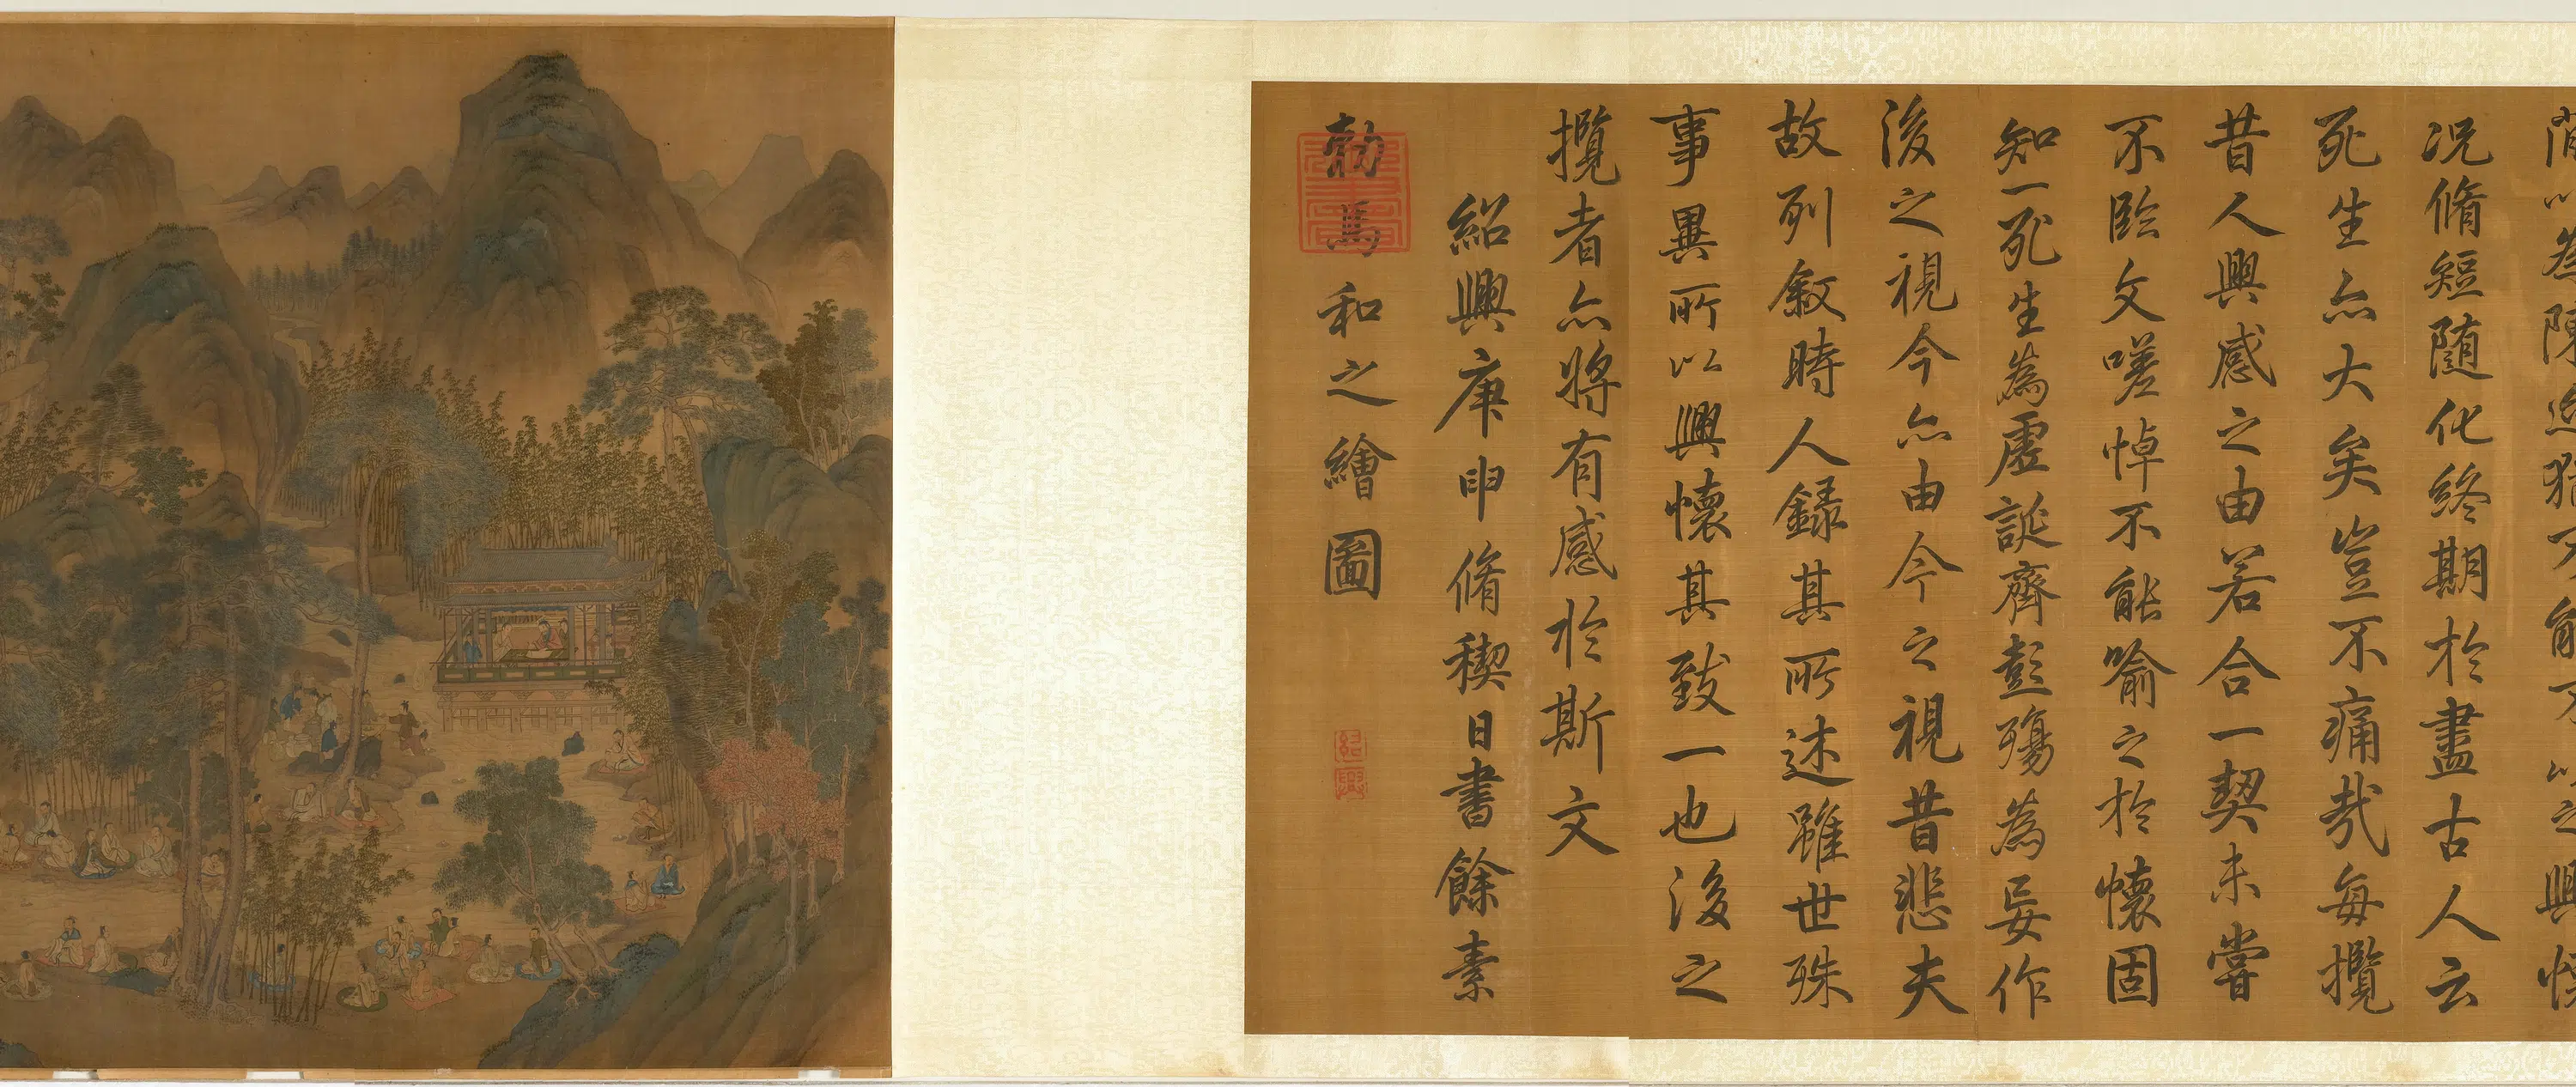 間以為陳迹猶不能不以之興懷
况脩短隨化終期於盡古人云
死生亦大矣豈不痛哉每攬
昔人興感之由若合一契未嘗
不臨文嗟悼不能喻之於懷固
知一死生為虛誕齊彭殤為妄作
後之視今亦由今之視昔悲夫
故列敘時人錄其所述雖世殊
事異所以興懷其致一也後之
攬者亦將有感於斯文
紹興庚申脩稧日書餘素
勑馬和之繪圖
紹興